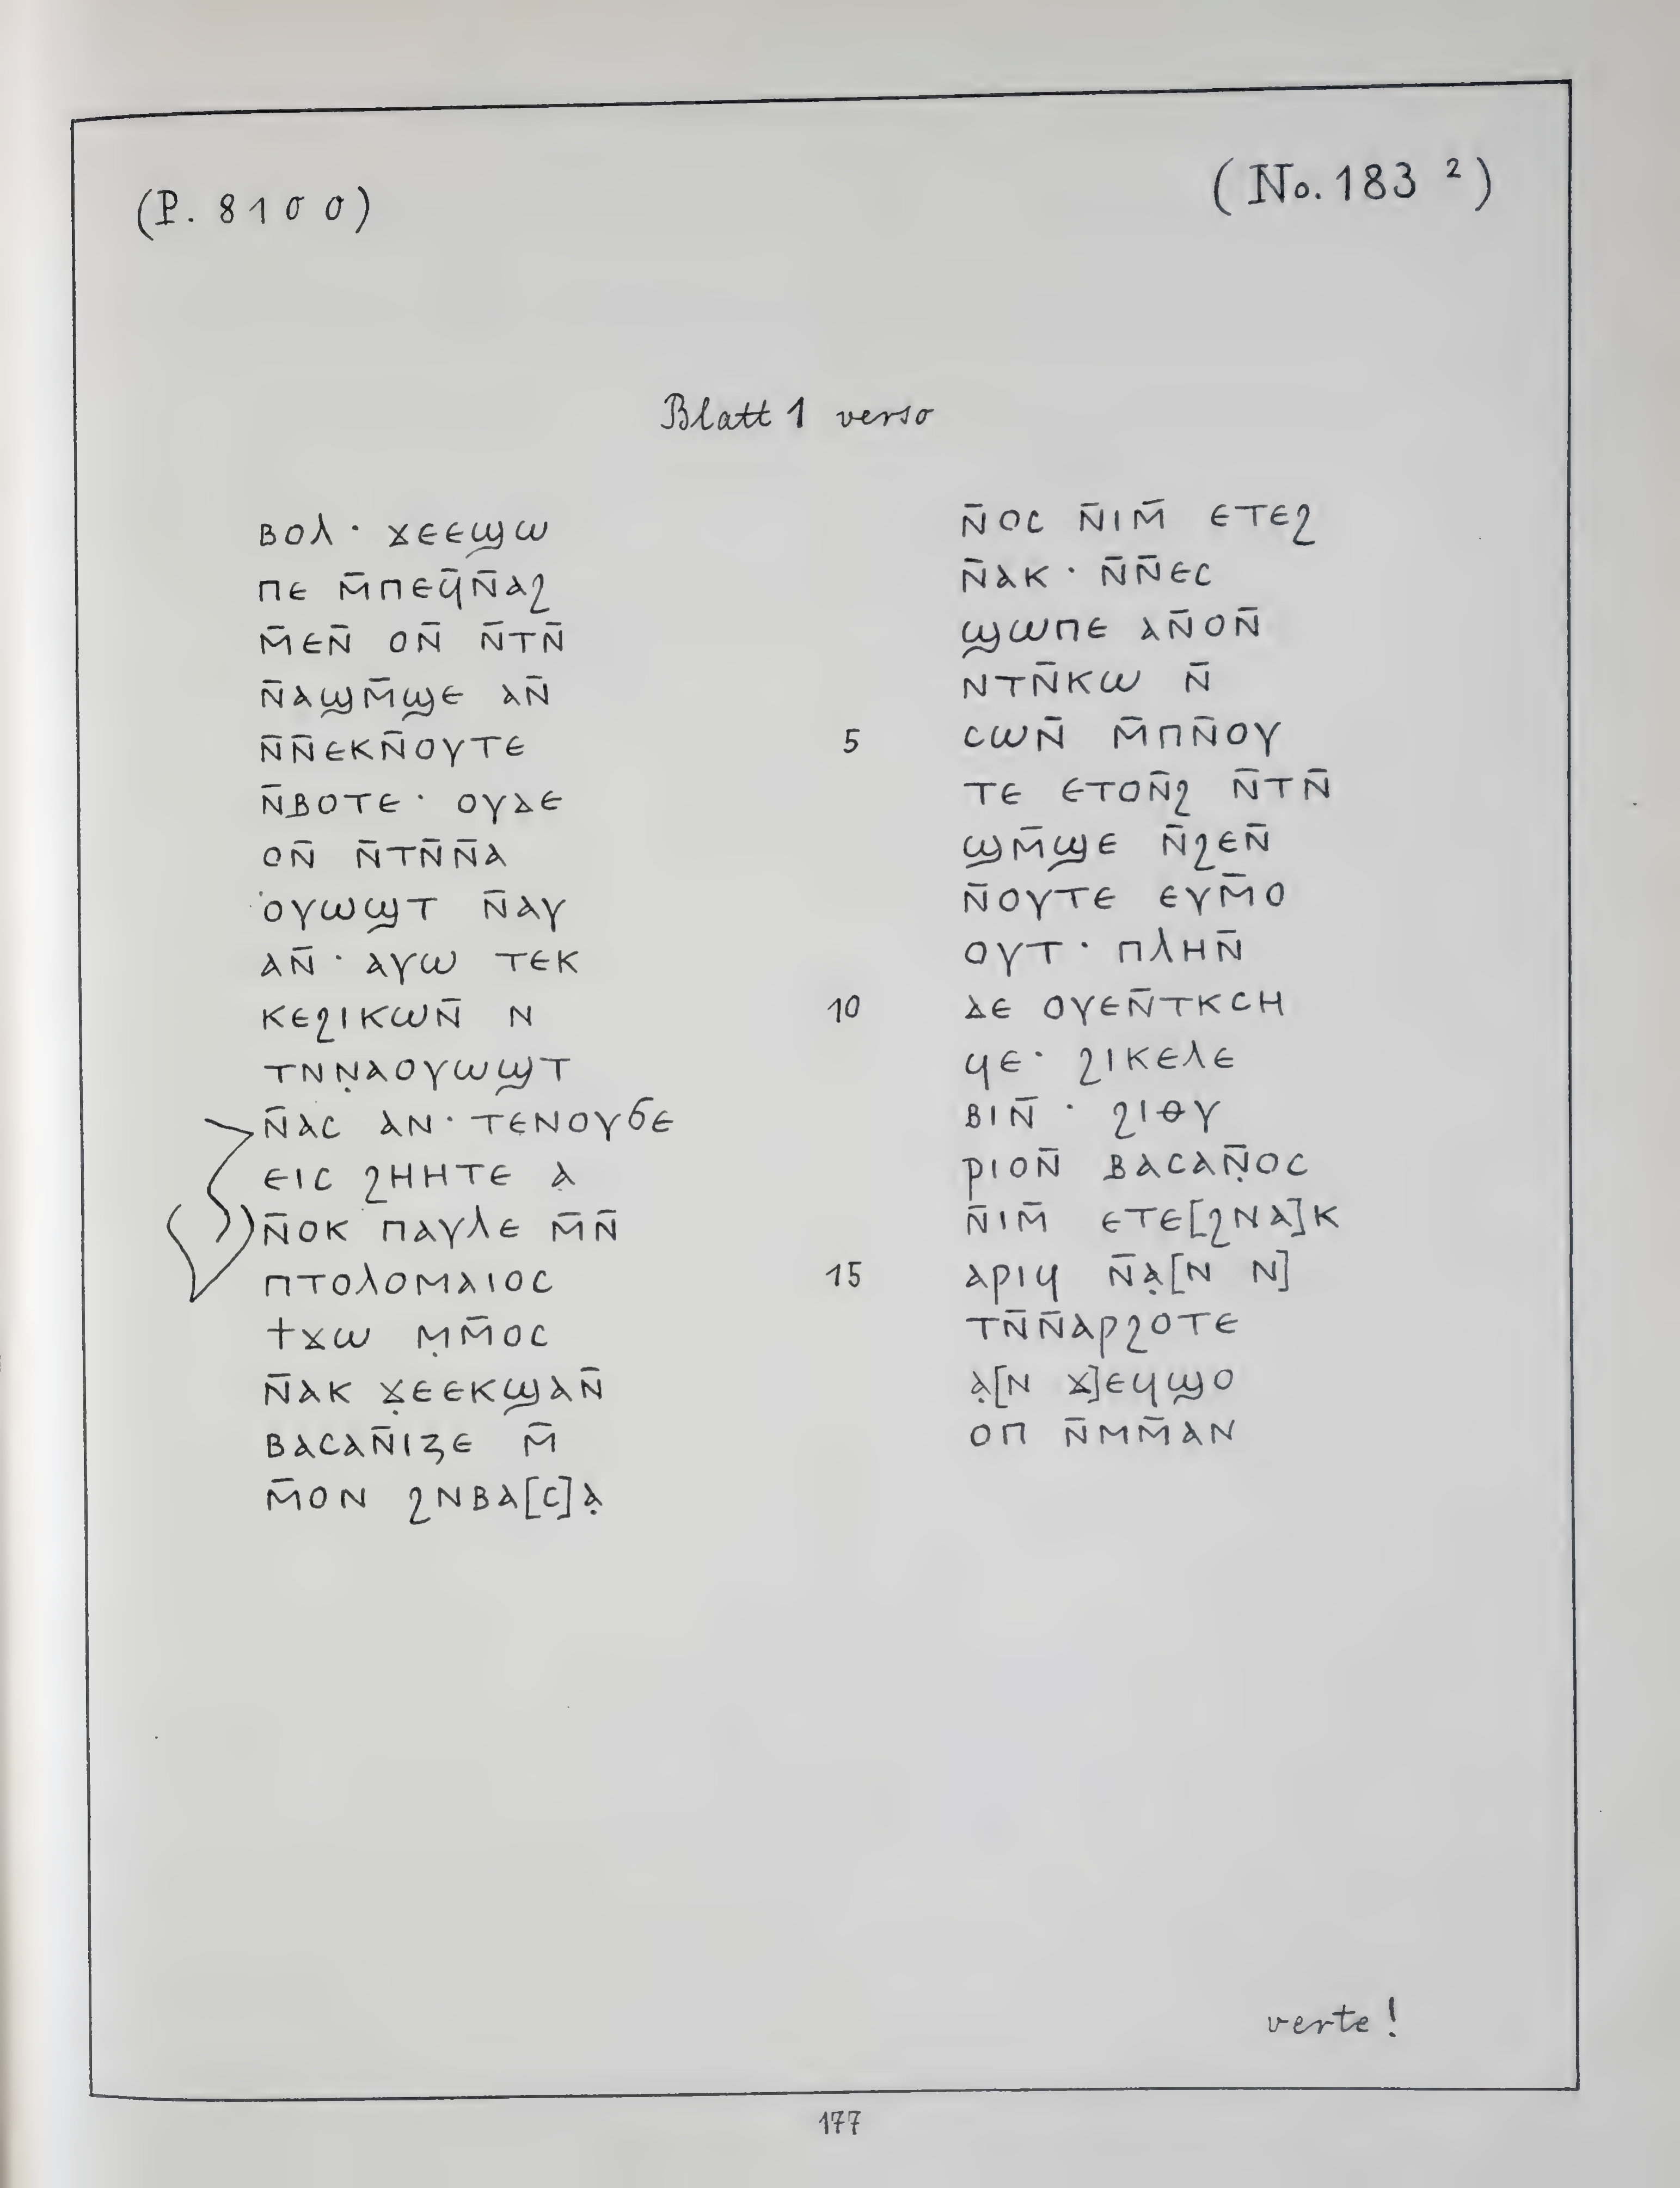 (P. 8100)
(No. 183 ²)
Blatt 1 verso
ⲃⲟⲗ · ϫⲉⲉϣⲱ
ⲡⲉ ⲙ̄ⲡⲉϥ̄ⲛ̄ⲁϩ
ⲙ̄ⲉⲛ̄ ⲟⲛ̄ ⲛ̄ⲧⲛ̄
ⲛ̄ⲁϣⲙ̄ϣⲉ ⲁⲛ̄
ⲛ̄ⲛ̄ⲉⲕⲛ̄ⲟⲩⲧⲉ
ⲛ̄ⲃⲟⲧⲉ · ⲟⲩⲇⲉ
ⲟⲛ̄ ⲛ̄ⲧⲛ̄ⲛ̄ⲁ
ⲟⲩⲱϣⲧ ⲛ̄ⲁⲩ
ⲁⲛ̄ · ⲁⲩⲱ ⲧⲉⲕ
ⲕⲉϩⲓⲕⲱⲛ̄ ⲛ
ⲧⲛⲛ̣ⲁⲟⲩⲱϣⲧ
ⲛ̄ⲁⲥ ⲁⲛ · ⲧⲉⲛⲟⲩϭⲉ
ⲉⲓⲥ ϩⲏⲏⲧⲉ ⲁ̣
ⲛ̄ⲟⲕ ⲡⲁⲩⲗⲉ ⲙ̄ⲛ̄
ⲡⲧⲟⲗⲟⲙⲁⲓⲟⲥ
ϯϫⲱ ⲙ̣ⲙ̄ⲟⲥ
ⲛ̄ⲁⲕ ϫ̣ⲉⲉⲕϣⲁⲛ̄
ⲃⲁⲥⲁⲛ̄ⲓⲍⲉ ⲙ̄
ⲙ̄ⲟⲛ ϩⲛⲃⲁ[ⲥ]ⲁ̣
ⲛ̄ⲟⲥ ⲛ̄ⲓⲙ̄ ⲉⲧⲉϩ
ⲛ̄ⲁⲕ · ⲛ̄ⲛ̄ⲉⲥ
ϣⲱⲡⲉ ⲁⲛ̄ⲟⲛ̄
ⲛⲧⲛ̄ⲕⲱ ⲛ̄
5 ⲥⲱⲛ̄ ⲙ̄ⲡⲛ̄ⲟⲩ
ⲧⲉ ⲉⲧⲟⲛ̄ϩ ⲛ̄ⲧⲛ̄
ϣⲙ̄ϣⲉ ⲛ̄ϩⲉⲛ̄
ⲛ̄ⲟⲩⲧⲉ ⲉⲩⲙ̄ⲟ
ⲟⲩⲧ · ⲡⲗⲏⲛ̄
10 ⲇⲉ ⲟⲩⲉⲛ̄ⲧⲕⲥⲏ
ϥⲉ · ϩⲓⲕⲉⲗⲉ
ⲃⲓⲛ̄ · ϩⲓⲑⲩ
ⲣⲓⲟⲛ̄ ⲃⲁⲥⲁⲛ̣̄ⲟⲥ
ⲛ̄ⲓⲙ̄ ⲉⲧⲉ[ϩⲛⲁ]ⲕ
15 ⲁⲣⲓϥ ⲛ̄ⲁ̣[ⲛ ⲛ]
ⲧⲛ̄ⲛ̄ⲁⲣϩⲟⲧⲉ
ⲁ̣[ⲛ ϫ]ⲉϥϣⲟ
ⲟⲡ ⲛ̄ⲙⲙ̄ⲁⲛ
verte!
177